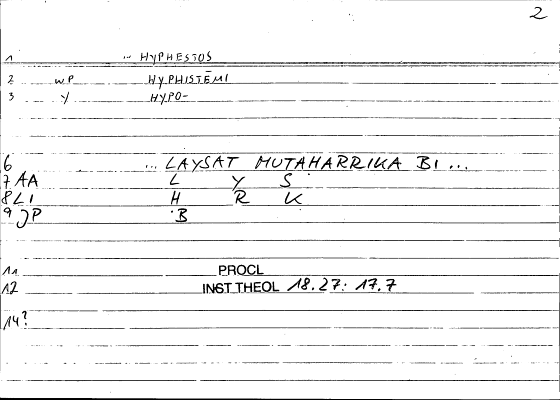 2
1 .. HYPHESTOS
2 WP HYPHISTĒMI
3 Y HYPO-
6 ... LAYSAT MUTAHARRIKA BI ...
7 AA L Y S
8 LI H R K
9 JP B
11 PROCL
12 INST.THEOL 18.27: 17.7
14?